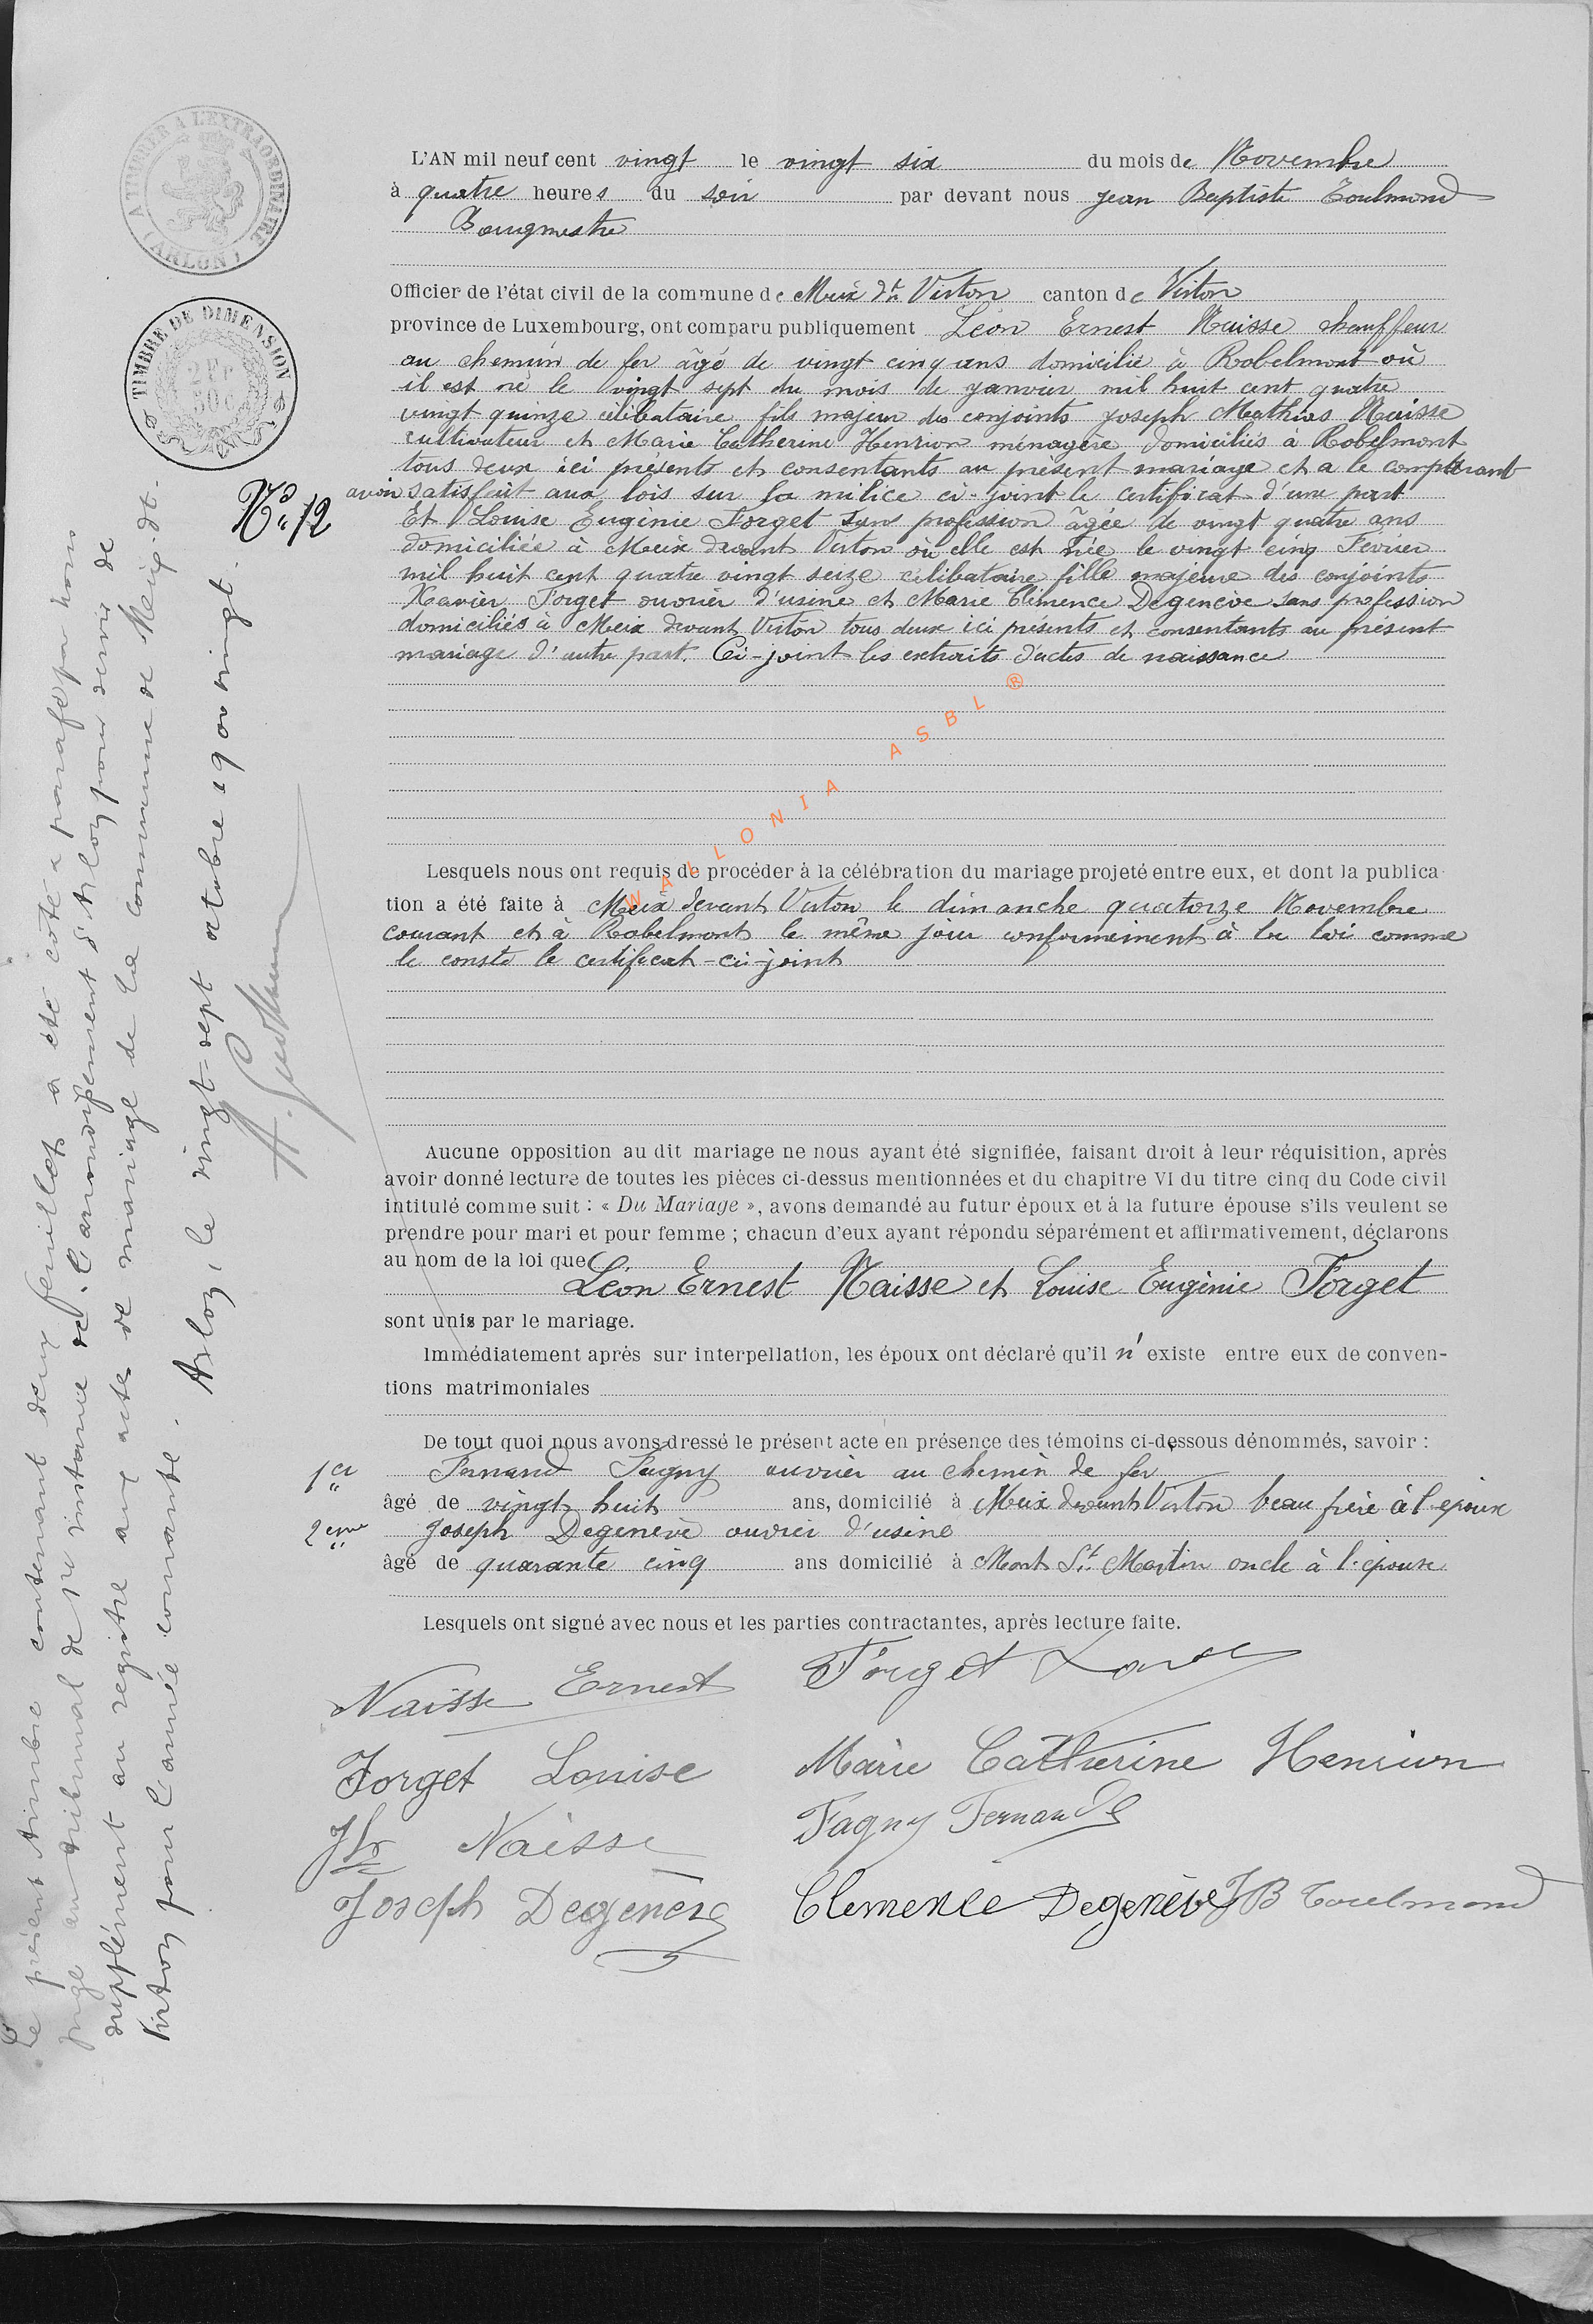 A TIMBRER A L'EXTRAORDINAIRE
(ARLON)
TIMBRE DE DIMENSION
N° 12
L'AN mil neuf cent vingt le vingt six du mois de Novembre
à quatre heures du soir par devant nous Jean Baptiste Toulmond
Bourgmestre
Officier de l'état civil de la commune de Meix dt Virton canton de Virton
province de Luxembourg, ont comparu publiquement Léon Ernest Naisse chauffeur
au chemin de fer âgé de vingt cinq ans domicilié à Robelmont où
il est né le vingt sept du mois de janvier mil huit cent quatre
vingt quinze célibataire fils majeur des conjoints Joseph Mathias Naisse
cultivateur et Marie Catherine Henrion ménagère domiciliés à Robelmont
tous deux ici présents et consentants au présent mariage et a le comparant
avoir satisfait aux lois sur la milice ci-joint le certificat d'une part
Et Louise Eugénie Forget sans profession âgée de vingt quatre ans
domiciliée à Meix devant Virton où elle est née le vingt cinq Février
mil huit cent quatre vingt seize célibataire fille majeure des conjoints
Xavier Forget ouvrier d'usine et Marie Clémence Degenève sans profession
domiciliés à Meix devant Virton tous deux ici présents et consentants au présent
mariage d'autre part. Ci-joint les extraits d'actes de naissance
WALLONIA ASBL ®
Lesquels nous ont requis de procéder à la célébration du mariage projeté entre eux, et dont la publica
tion a été faite à Meix devant Virton le dimanche quatorze Novembre
courant et à Robelmont le même jour conformément à la loi comme
le conste le certificat-ci-joint
Aucune opposition au dit mariage ne nous ayant été signifiée, faisant droit à leur réquisition, après
avoir donné lecture de toutes les pièces ci-dessus mentionnées et du chapitre VI du titre cinq du Code civil
intitulé comme suit : « Du Mariage », avons demandé au futur époux et à la future épouse s'ils veulent se
prendre pour mari et pour femme ; chacun d'eux ayant répondu séparément et affirmativement, déclarons
au nom de la loi que
Léon Ernest Naisse et Louise Eugénie Forget
sont unis par le mariage.
Immédiatement après sur interpellation, les époux ont déclaré qu'il n'existe entre eux de conven-
tions matrimoniales
De tout quoi nous avons dressé le présent acte en présence des témoins ci-dessous dénommés, savoir :
1er Fernand Fagny ouvrier au chemin de fer
âgé de vingt huit ans, domicilié à Meix devant Virton beau frère à l'époux
2eme Joseph Degenève ouvrier d'usine
âgé de quarante cinq ans domicilié à Mont St Martin oncle à l'épouse
Lesquels ont signé avec nous et les parties contractantes, après lecture faite.
Naisse Ernest Forget
Forget Louise Marie Catherine Henrion
Naisse Fagny Fernand
Joseph Degenève Clemence Degenève JB Toulmond
Le présent timbre contenant deux feuillets a été coté & parafé par nous
juge au tribunal de 1re instance de l'arrondissement d'Arlon pour servir de
supplément au registre aux actes de mariage de la commune de Meix-dt-
Virton pour l'année courante. Arlon, le vingt-sept octobre 1900 vingt.